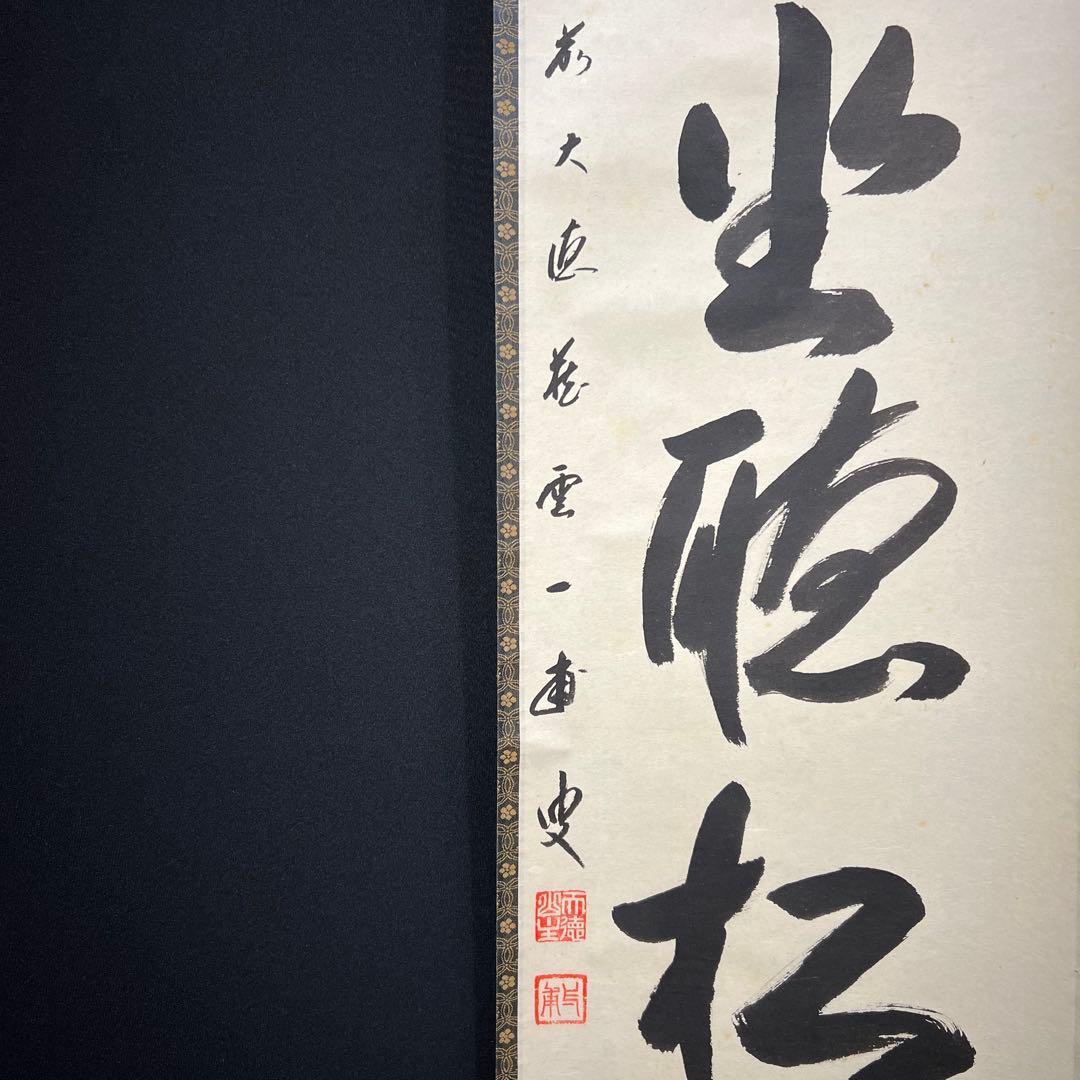 坐聴松
前大徳雲一甫叟